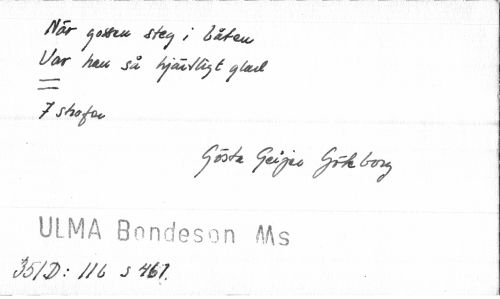 När gossen steg i båten
Var han så hjärtligt glad
7 strofer
Gösta Geijer Göteborg
ULMA Bondeson Ms
351D: 116 s 467.